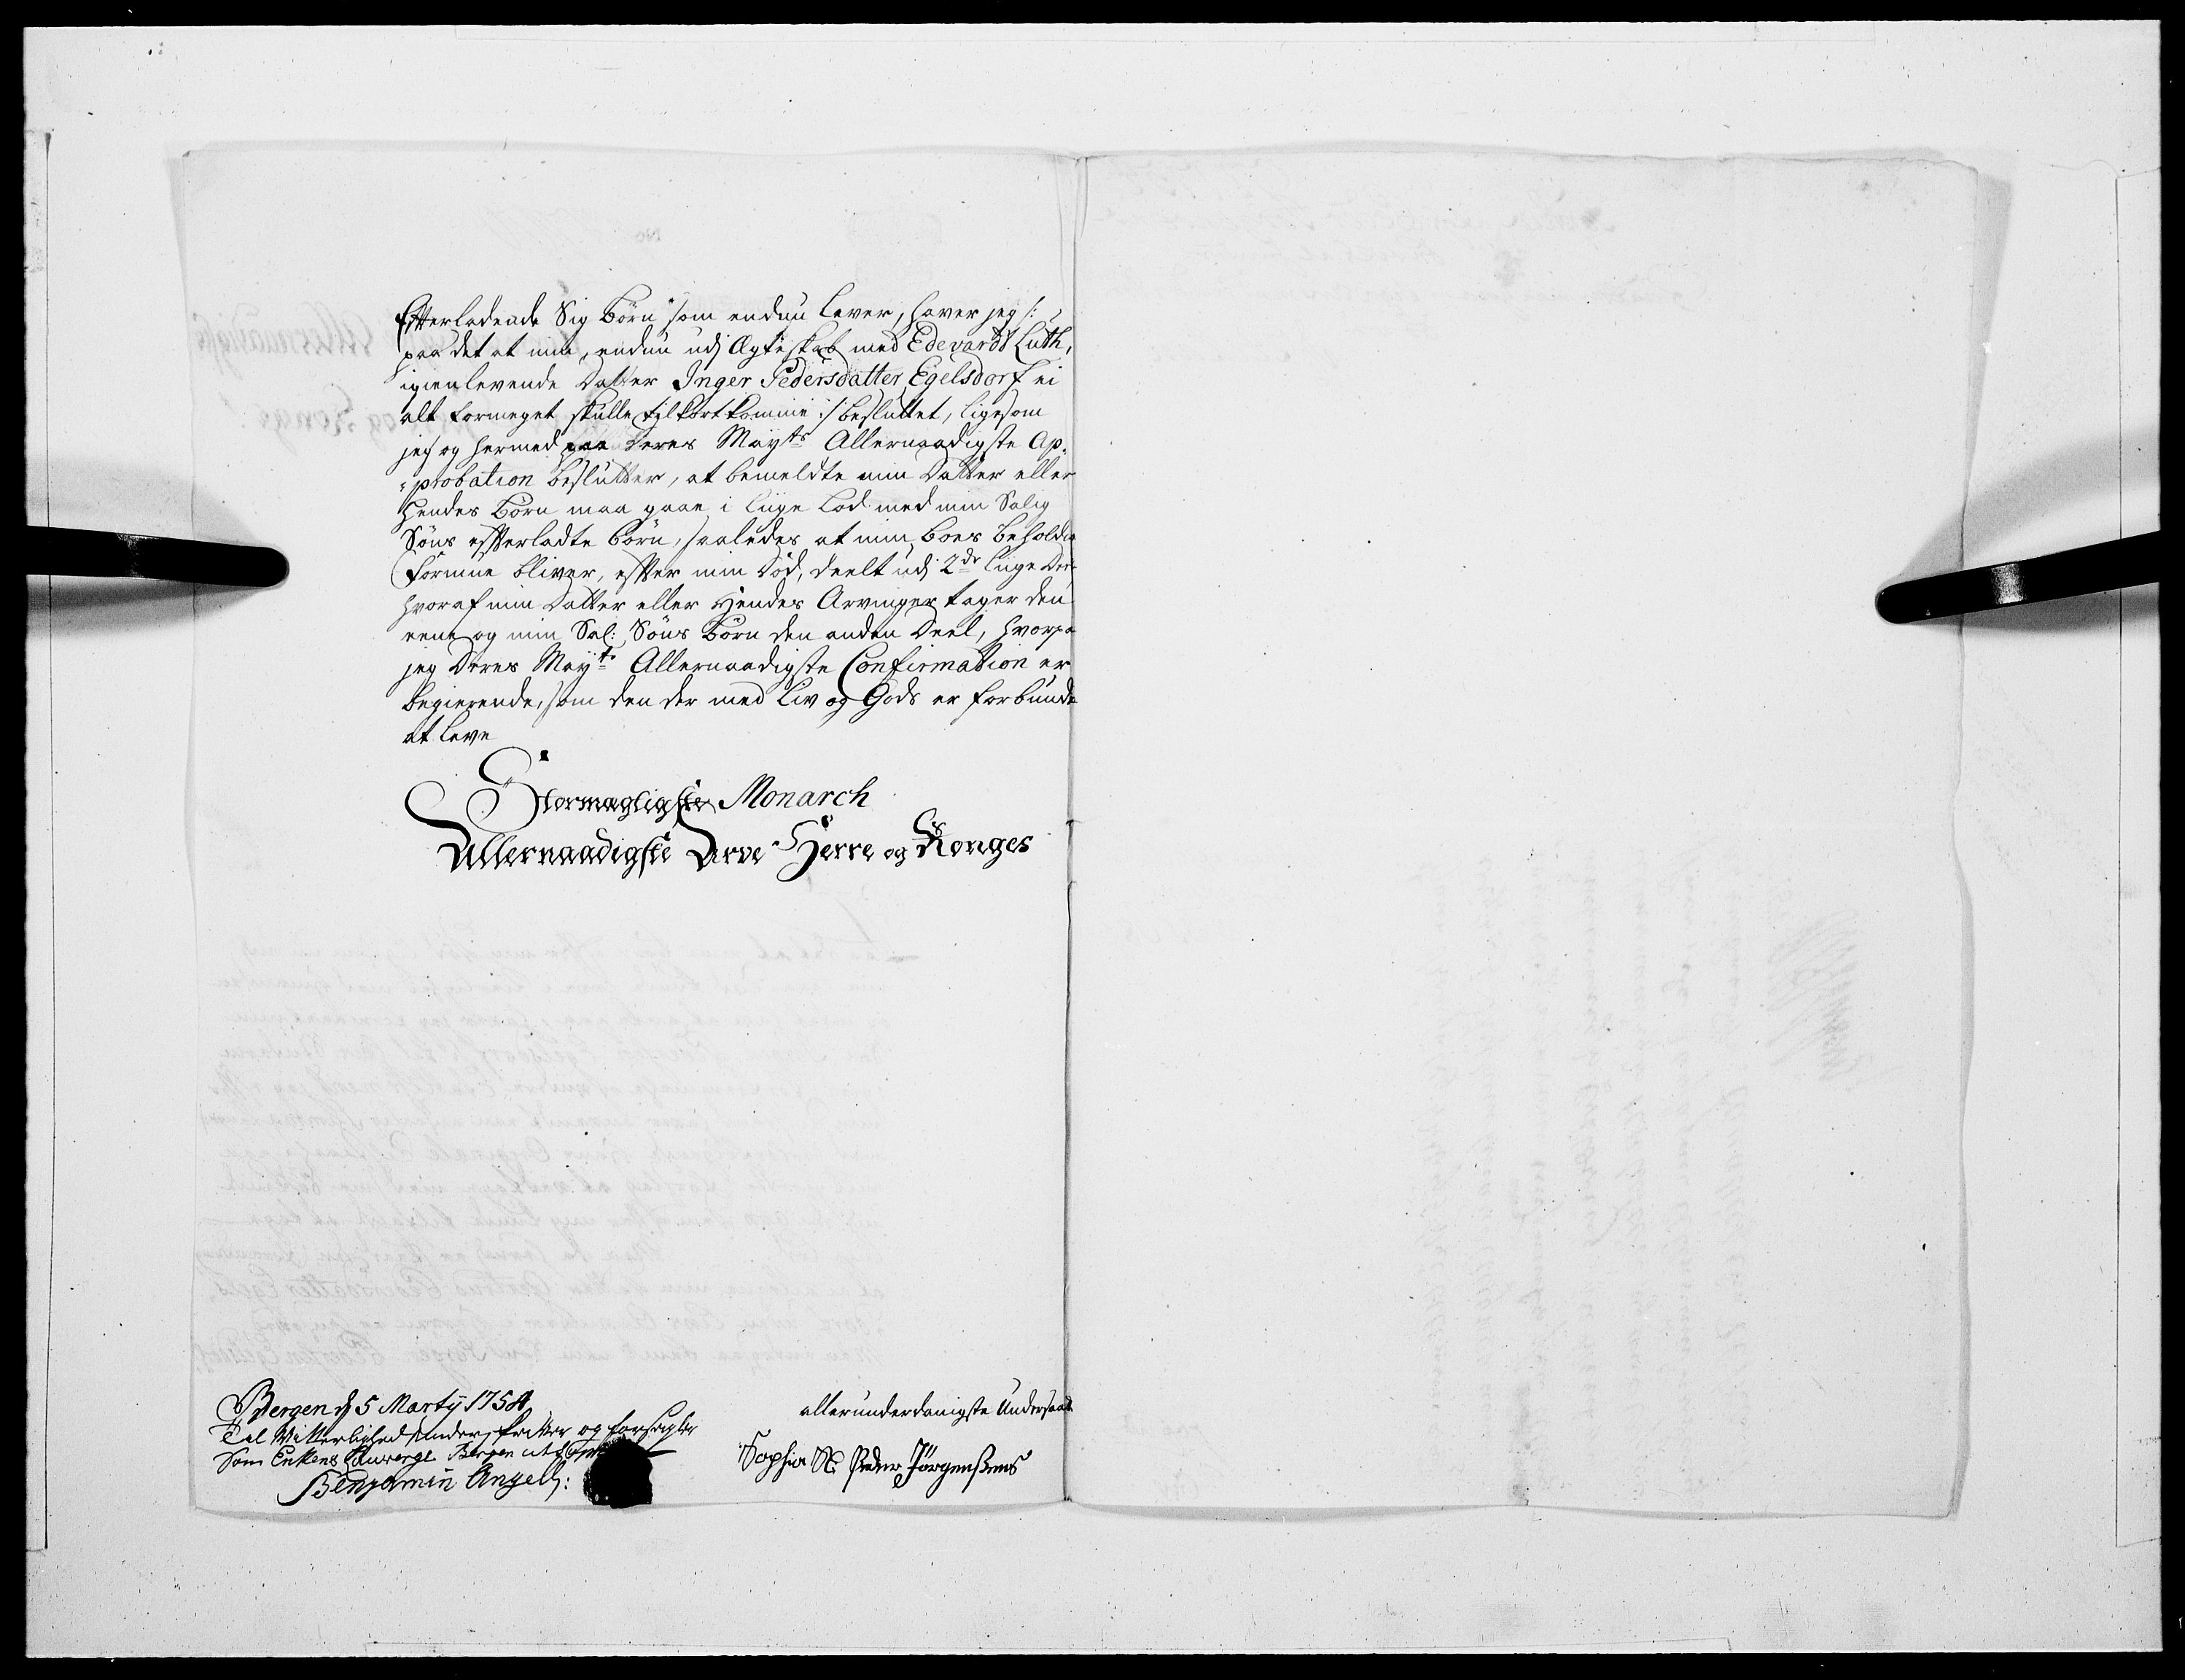 Efterladende Sig Børn som endnu lever, haver jeg /:
paa det at min, endnu udj Ægteskab med Edevardt Lüth,
igienlevende Datter Inger Pedersdatter Egelsdorf ei
alt formeget skulle til kort komme :/ besluttet, ligesom
jeg og hermed paa Deres Mayts Allernaadigste Ap-
-probation beslutter, at bemeldte min Datter eller
Hendes Børn maa gaae i liige Lod med min Salig
Søns efterladte Børn, saaledes at min Boes beholdne
Formue bliver, efter min Død, deelt udj 2de liige Dee
hvoraf min Datter eller Hendes Arvinger tager den
eene og min Sal: Søns Børn den anden Deel, hvorpa
jeg Deres Mayts Allernaadigste Confirmation er
begierende, som den der med Liv og Gods er forbunde
at leve
Stormægtigste Monarch
Allernaadigste Arve Herre og Konges
Bergen d 5 Martij 1754
Til Vitterlighed underskriver og forsegler
Som Enkens Laugverge Bergen ut
Benjamin Angell:
allerunderdanigste Undersaat
Sophia Sl. Peder Jörgensens